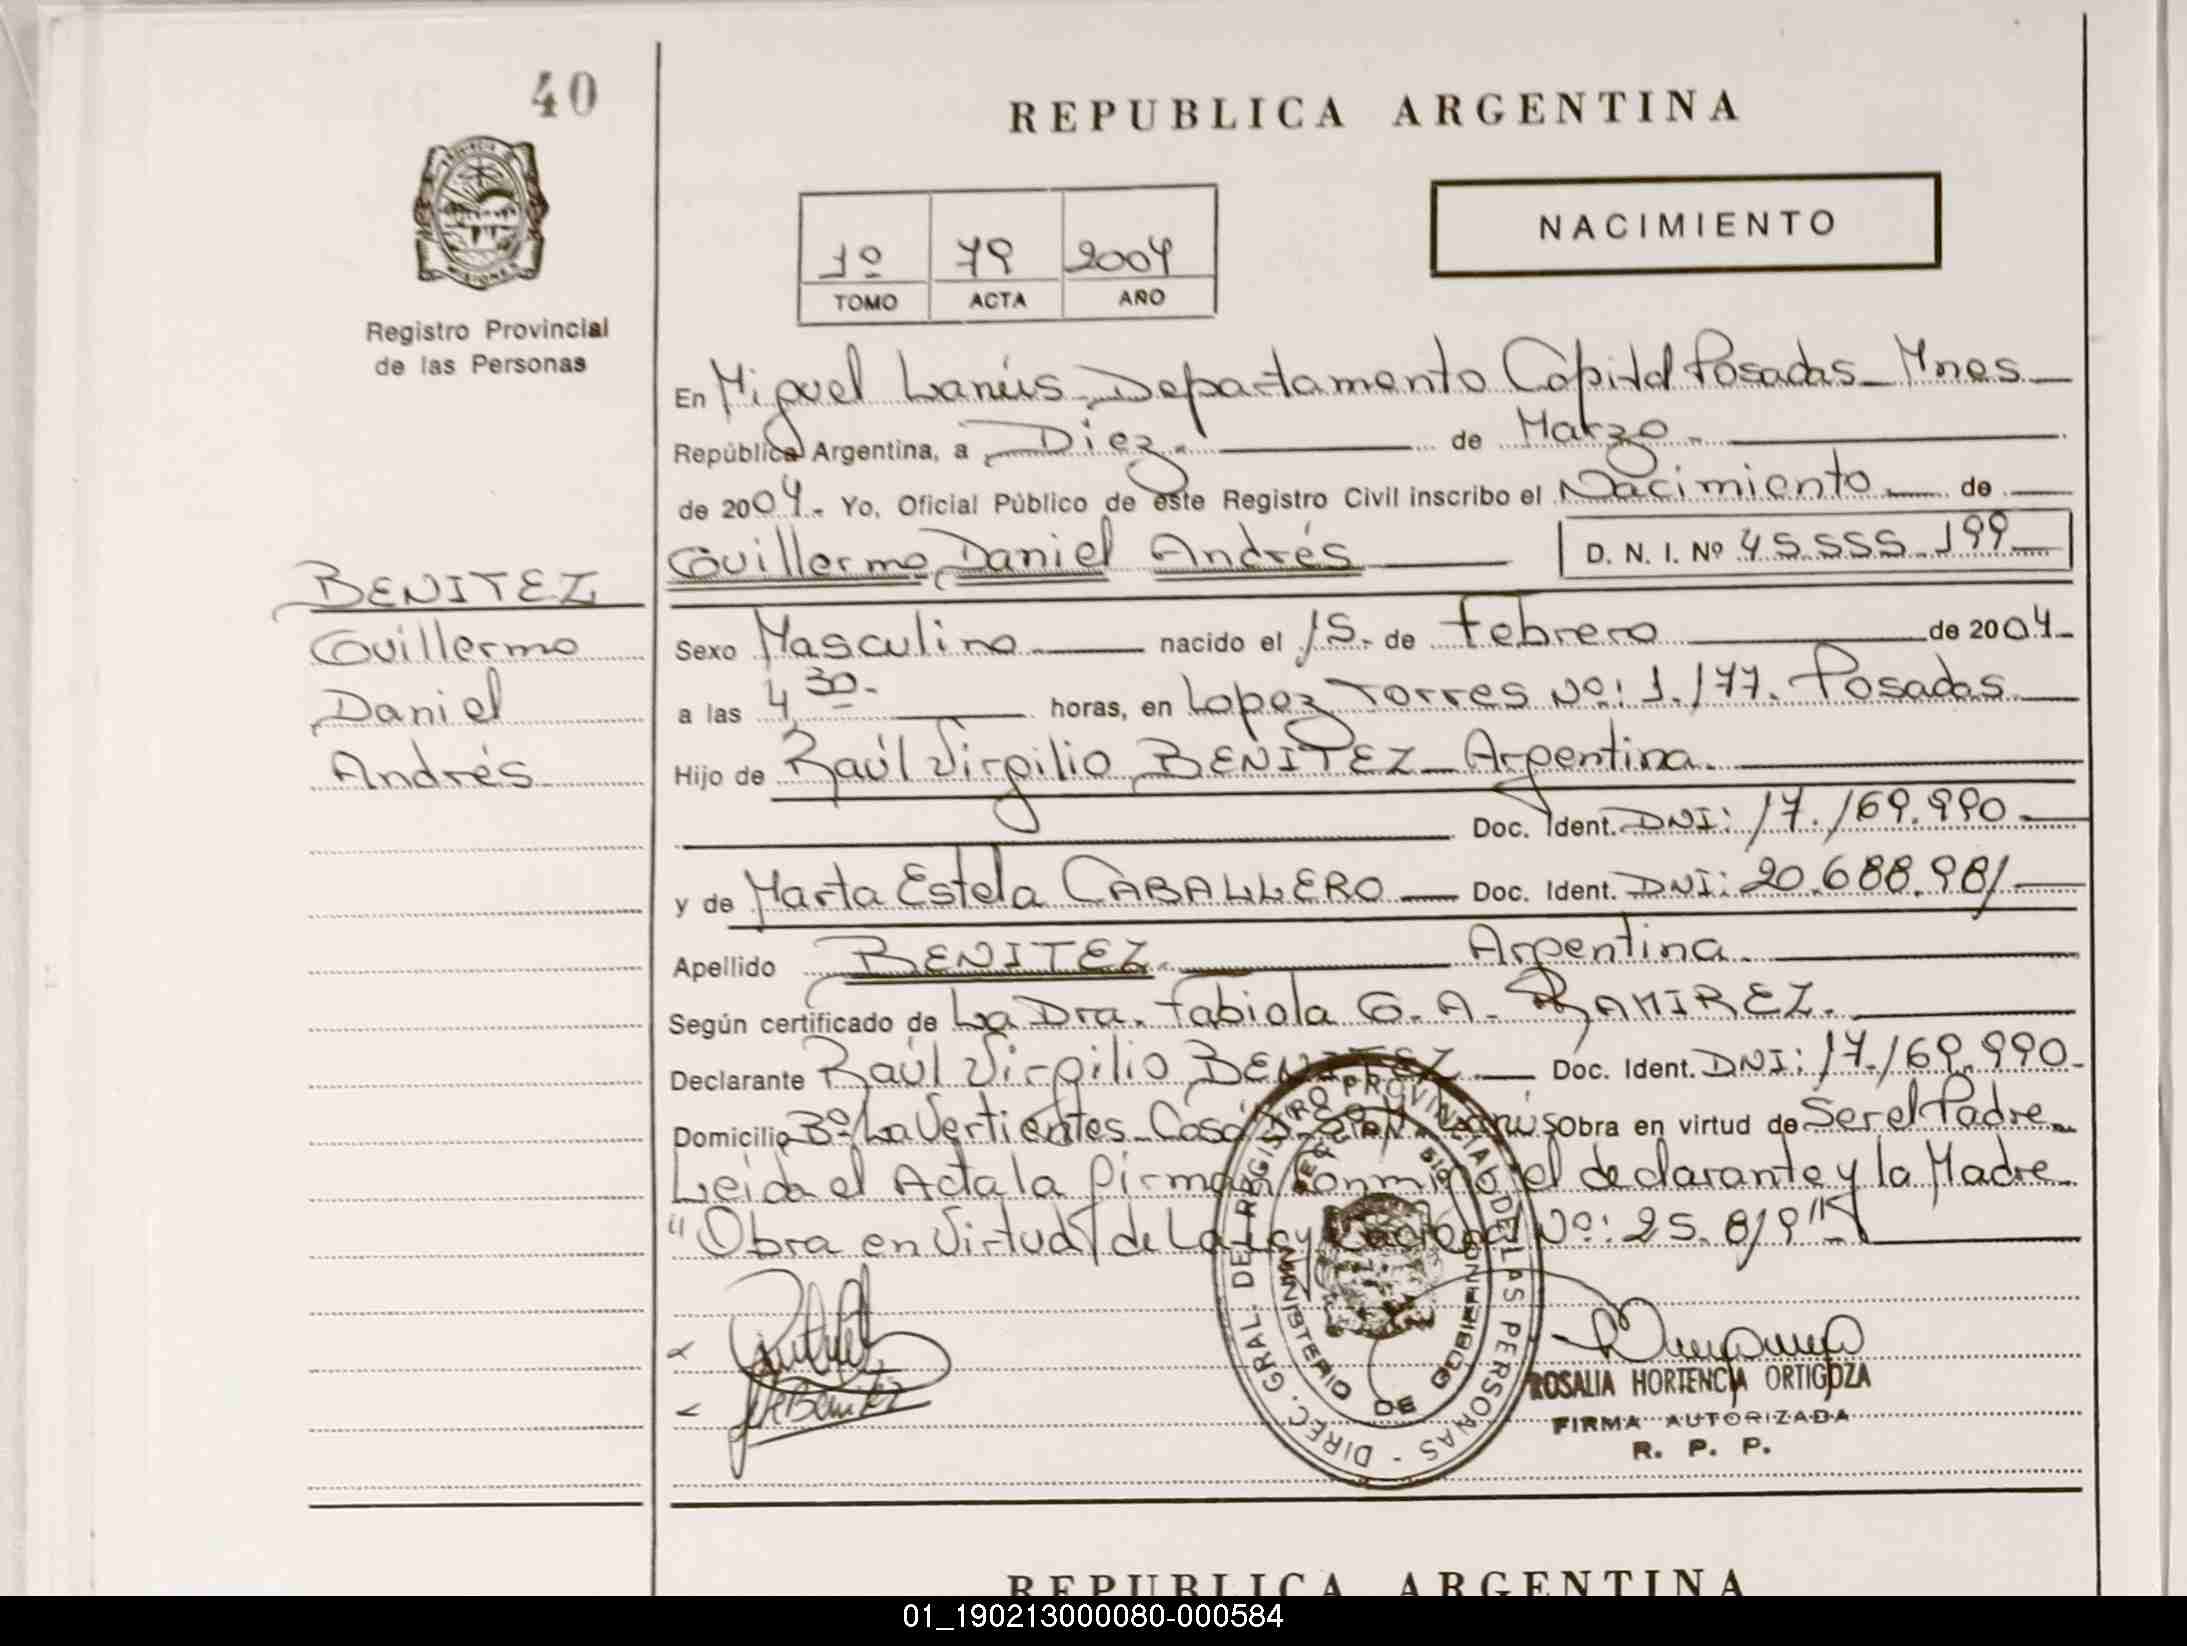 40
REPUBLICA ARGENTINA
NACIMIENTO
1º 79 2004
TOMO ACTA AÑO
Registro Provincial
de las Personas
En Miguel Lanús - Departamento Capital Posadas - Mnes
República Argentina, a Diez. de Marzo.
de 2004. Yo, Oficial Público de este Registro Civil inscribo el Nacimiento de
Guillermo Daniel Andrés D. N. I. Nº 45.555.199
BENITEZ
Guillermo
Daniel
Andrés
Sexo Masculino nacido el 15. de Febrero de 2004.
a las 4 30. horas, en Lopez Torres Nº: 1.177. Posadas
Hijo de Raúl Virgilio BENITEZ - Argentina.
Doc. Ident. DNI: 17.169.990
y de Marta Estela CABALLERO Doc. Ident. DNI: 20.688.981
Apellido BENITEZ. Argentina.
Según certificado de La Dra. Fabiola G. A. RAMIREZ.
Declarante Raúl Virgilio BENITEZ Doc. Ident. DNI: 17.169.990.
Domicilio Bº La Vertientes - Casa Lanús Obra en virtud de Ser el Padre.
Leida el Acta la firman conmigo el declarante y la Madre.
"Obra en Virtud de La Ley Nacional Nº: 25.819"
DIREC. GRAL. DEL REGISTRO PROVINCIAL DE LAS PERSONAS -
MINISTERIO DE GOBIERNO
ROSALIA HORTENCIA ORTIGOZA
FIRMA AUTORIZADA
R. P. P.
REPUBLICA ARGENTINA
01_190213000080-000584